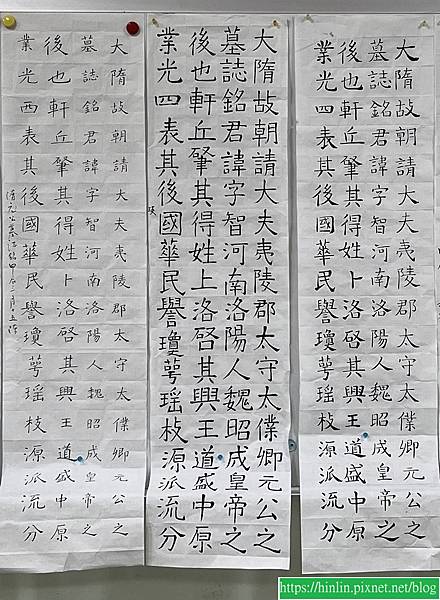 大隋故朝請大夫夷陵郡太守太僕卿元公之
墓誌銘君諱字智河南洛陽人魏昭成皇帝之
後也軒丘肇其得姓卜洛啓其興王道盛中原
業光四表其後國華民譽瓊萼瑶枝源派流分
大隋故朝請大夫夷陵郡太守太僕卿元公之
墓誌銘君諱字智河南洛陽人魏昭成皇帝之
後也軒丘肇其得姓上洛啓其興王道盛中原
業光四表其後國華民譽瓊萼瑶枝源派流分
大隋故朝請大夫夷陵郡太守太僕卿元公之
墓誌銘君諱字智河南洛陽人魏昭成皇帝之
後也軒丘肇其得姓卜洛啓其興王道盛中原
業光西表其後國華民譽瓊萼瑶枝源派流分
https://hinlin.pixnet.net/blog